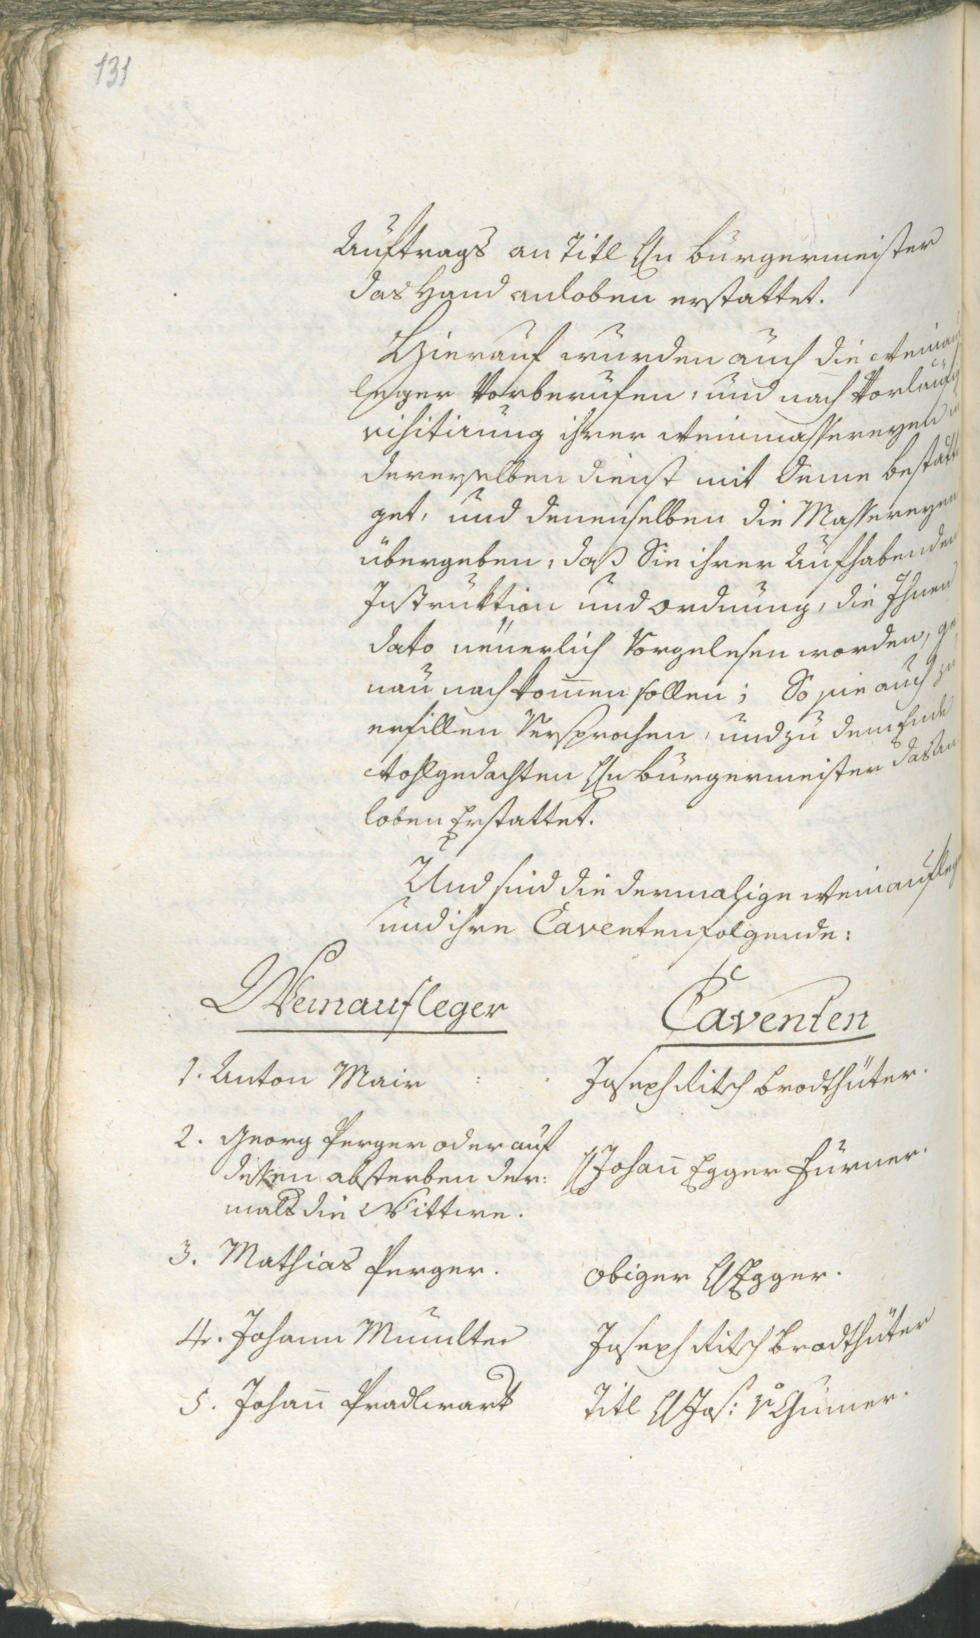 131
Auftrags an Titl H̅n Bürgermeister
das Hand anloben erstattet.
Hierauf wurden auch die Weinauf
leger Vorberufen, und nach Vorläufig
visitirung ihrer Weinmassereyen in
dereselben dienst mit deme bestätti
get, und denenselben die Massereyen
übergeben, daß Sie ihrer Aufhabenden
Instruktion und ordnung, die Ihnen
dato neüerlich Vorgelesen worden, ge
nau nach kom̅en sollen; So sie auch zu
erfillen Versprochen, und zu dem Ende
Wohlgedachten H̅n Bürgermeister das An
loben Erstattet.
Und sind die dermalige Weinaufleger
und ihre Caventen folgende:
Weinaufleger
Caventen
1. Anton Mair : .
Joseph Ritsch Brodthüter.
2. Georg Perger oder auf
dessen absterben der:
mals die Wittwe.
H Johan̅ Egger Fürner.
3. Mathias Perger.
obiger H Egger.
4. Johann Münlter
Joseph Ritsch Brodthüter
5. Johan̅ Pradlwart
Titl H Jos: v. Gumer.